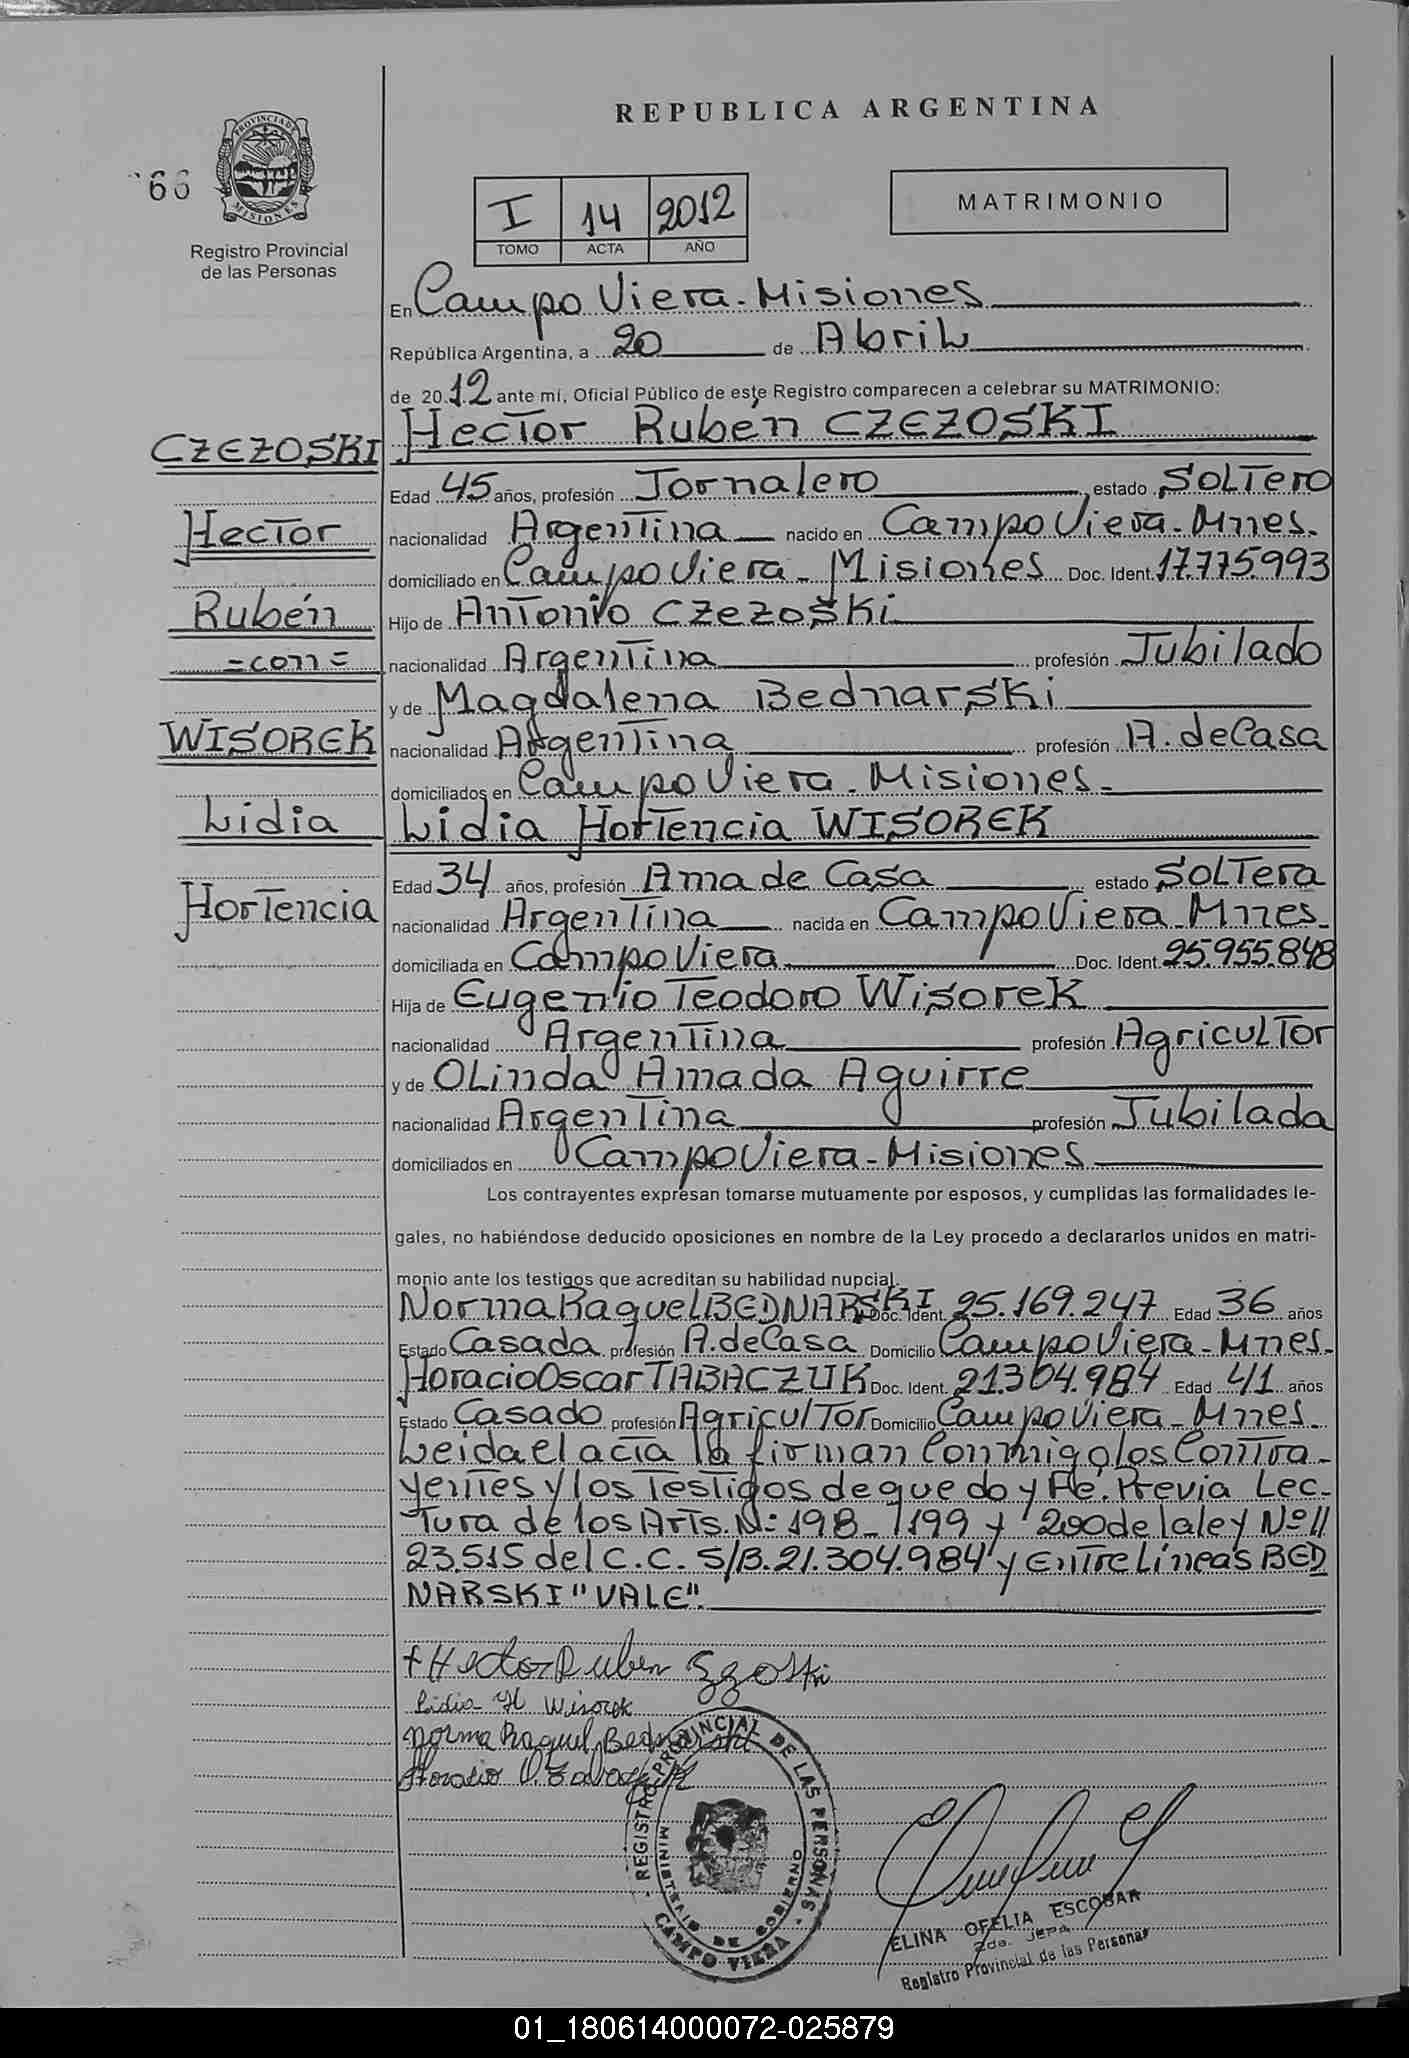 REPUBLICA ARGENTINA
66
PROVINCIA DE MISIONES
Registro Provincial
de las Personas
I 14 2012
TOMO ACTA AÑO
MATRIMONIO
En Campo Viera - Misiones
República Argentina, a 20 de Abril
de 2012 ante mí, Oficial Público de este Registro comparecen a celebrar su MATRIMONIO:
CZEZOSKI
Hector
Rubén
=con=
WISOREK
Lidia
Hortencia
Hector Rubén CZEZOSKI
Edad 45 años, profesión Jornalero estado Soltero
nacionalidad Argentina nacido en Campo Viera - Mnes.
domiciliado en Campo Viera - Misiones Doc. Ident. 17.775.993
Hijo de Antonio Czezoski
nacionalidad Argentina profesión Jubilado
y de Magdalena Bednarski
nacionalidad Argentina profesión A. de Casa
domiciliados en Campo Viera - Misiones -
Lidia Hortencia WISOREK
Edad 34 años, profesión Ama de Casa estado Soltera
nacionalidad Argentina nacida en Campo Viera - Mnes -
domiciliada en Campo Viera Doc. Ident. 25.955.848
Hija de Eugenio Teodoro Wisorek
nacionalidad Argentina profesión Agricultor
y de Olinda Amada Aguirre
nacionalidad Argentina profesión Jubilada
domiciliados en Campo Viera - Misiones
Los contrayentes expresan tomarse mutuamente por esposos, y cumplidas las formalidades le-
gales, no habiéndose deducido oposiciones en nombre de la Ley procedo a declararlos unidos en matri-
monio ante los testigos que acreditan su habilidad nupcial.
Norma Raquel BEDNARSKI Doc. Ident. 25.169.247 Edad 36 años
Estado Casada profesión A. de Casa Domicilio Campo Viera - Mnes -
Horacio Oscar TABACZUK Doc. Ident. 21.304.984 Edad 41 años
Estado Casado profesión Agricultor Domicilio Campo Viera - Mnes -
Leida el acta la firman Conmigo los Contra-
yentes y los Testigos de que doy Fé. Previa Lec-
tura de los Arts. Nº 198 - 199 y 200 de la ley Nº //
23.515 del C.C. S/B. 21.304.984 y Entre Líneas BED
NARSKI "VALE".
+ Hector Ruben
Lidia H Wisorek
Norma Raquel Bednarski
Horacio O.
REGISTRO PROVINCIAL DE LAS PERSONAS
MINISTERIO DE GOBIERNO
CAMPO VIERA
ELINA OFELIA ESCOBAR
2da. JEFA
Registro Provincial de las Personas
01_180614000072-025879